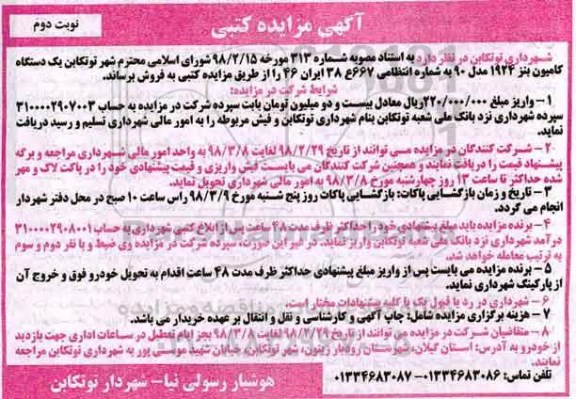 آگهی مزایده کتبی
نوبت دوم
شهرداری توتکابن در نظر دارد به استناد مصوبه شماره ۳۱۳ مورخه ۹۸/۲/۱۵ شورای اسلامی محترم شهر توتکابن یک دستگاه
کامیون بنز ۱۹۲۴ مدل ۹۰ به شماره انتظامی ۶۶۷ع ۳۸ ایران ۴۶ را از طریق مزایده کتبی به فروش برساند.
شرایط شرکت در مزایده:
۱- واریز مبلغ ۲۲۰/۰۰۰/۰۰۰ریال معادل بیست و دو میلیون تومان بابت سپرده شرکت در مزایده به حساب ۳۱۰۰۰۰۲۹۰۷۰۰۳
سپرده شهرداری نزد بانک ملی شعبه توتکابن بنام شهرداری توتکابن و فیش مربوطه را به امور مالی شهرداری تسلیم و رسید دریافت
نماید.
۲- شرکت کنندگان در مزایده می توانند از تاریخ ۹۸/۲/۲۹ لغایت ۹۸/۳/۸ به واحد امور مالی شهرداری مراجعه و برگه
پیشنهاد قیمت را دریافت نمایند و همچنین شرکت کنندگان می بایست فیش واریزی و قیمت پیشنهادی خود را در پاکت لاک و مهر
شده حداکثر تا ساعت ۱۳ روز چهارشنبه مورخ ۹۸/۳/۸ به امور مالی شهرداری تحویل نماید.
۳- تاریخ و زمان بازگشایی پاکات: بازگشایی پاکات روز پنج شنبه مورخ ۹۸/۳/۹ راس ساعت ۱۰ صبح در محل دفتر شهردار
انجام می گردد.
۴- برنده مزایده باید مبلغ پیشنهادی خود را حداکثر ظرف مدت ۴۸ ساعت پس از ابلاغ کتبی شهرداری به حساب ۳۱۰۰۰۰۲۹۰۸۰۰۱
درآمد شهرداری نزد بانک ملی شعبه توتکابن واریز نماید. در غیر این صورت، سپرده شرکت در مزایده وی ضبط و با نفر دوم و سوم
به ترتیب معامله خواهد شد.
۵- برنده مزایده می بایست پس از واریز مبلغ پیشنهادی حداکثر ظرف مدت ۴۸ ساعت اقدام به تحویل خودرو فوق و خروج آن
از پارکینگ شهرداری نماید.
۶- شهرداری در رد یا قبول یک یا کلیه پیشنهادات مختار است.
۷- هزینه برگزاری مزایده شامل: چاپ آگهی و کارشناسی و نقل و انتقال بر عهده خریدار می باشد.
۸- متقاضیان شرکت در مزایده می توانند از تاریخ ۹۸/۲/۲۹ لغایت ۹۸/۳/۸ بجز ایام تعطیل در ساعات اداری جهت بازدید
از خودرو به آدرس: استان گیلان، شهرستان رودبار زیتون، شهر توتکابن، خیابان شهید موسی پور به شهرداری توتکابن مراجعه
نمایند.
تلفن تماس: ۰۱۳۳۴۶۸۳۰۸۶- ۰۱۳۳۴۶۸۳۰۸۷
هوشیار رسولی نیا- شهردار توتکابن